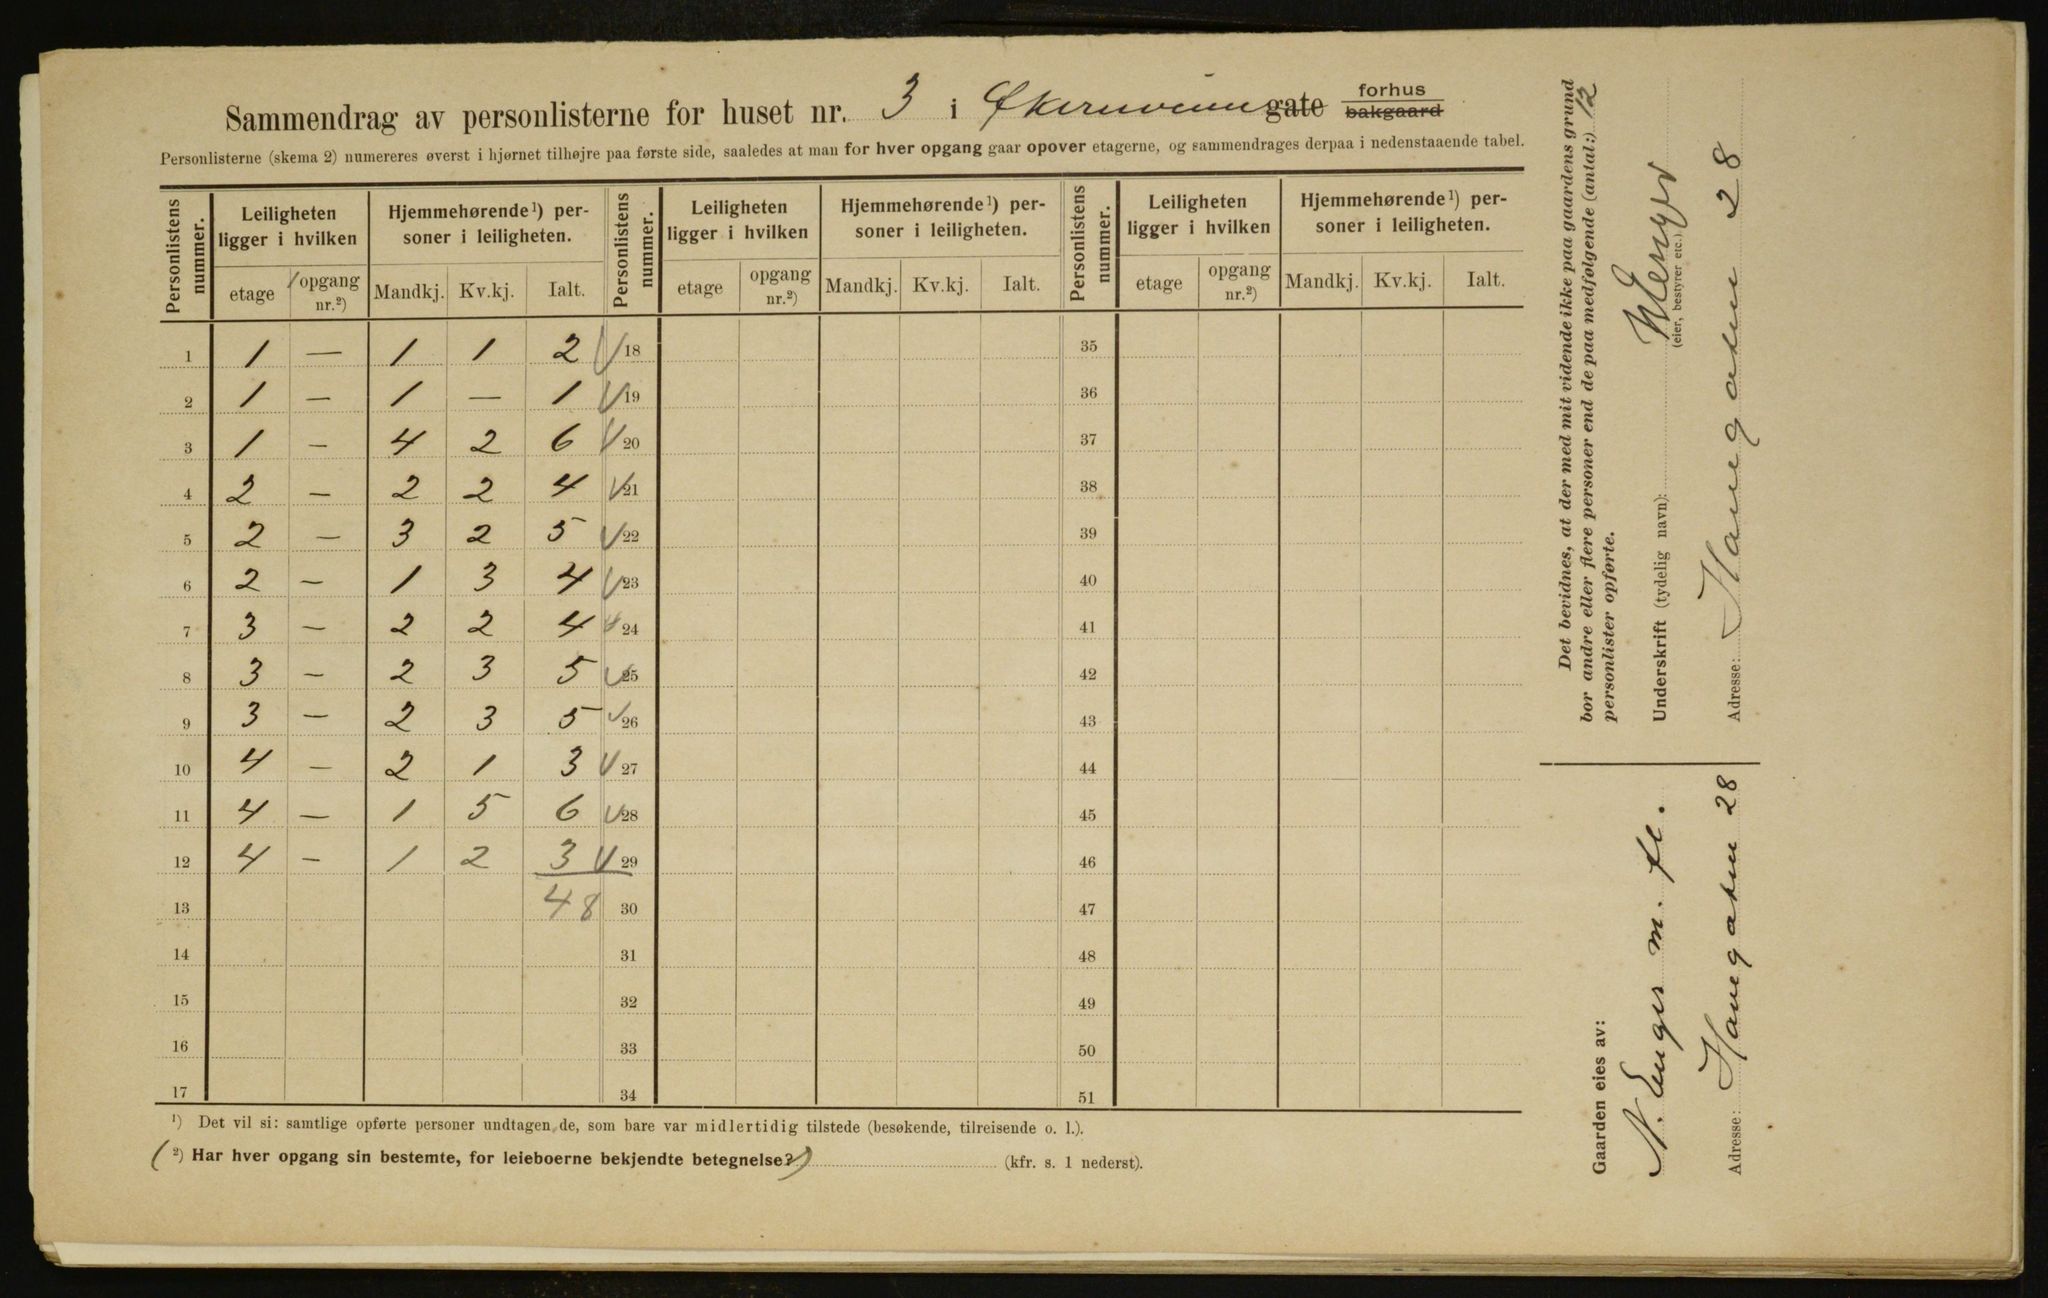 Sammendrag av personlisterne for huset nr. 3 i Økernveien gate forhus bakgaard
Personlisterne (skema 2) numereres øverst i hjørnet tilhøjre paa første side, saaledes at man for hver opgang gaar opover etagerne, og sammendrages derpaa i nedenstaaende tabel.
Personlistens nummer. Leiligheten ligger i hvilken Hjemmehørende ¹) personer i leiligheten. Personlistens nummer. Leiligheten ligger i hvilken Hjemmehørende ¹) personer i leiligheten. Personlistens nummer. Leiligheten ligger i hvilken Hjemmehørende ¹) personer i leiligheten.
etage opgang nr.²) Mandkj. Kv.kj. Ialt. etage opgang nr.²) Mandkj. Kv.kj. Ialt. etage opgang nr.²) Mandkj. Kv.kj. Ialt.
1 1 — 1 1 2 18 35
2 1 — 1 — 1 19 36
3 1 — 4 2 6 20 37
4 2 — 2 2 4 21 38
5 2 — 3 2 5 22 39
6 2 — 1 3 4 23 40
7 3 — 2 2 4 24 41
8 3 — 2 3 5 25 42
9 3 — 2 3 5 26 43
10 4 — 2 1 3 27 44
11 4 — 1 5 6 28 45
12 4 — 1 2 3 29 46
13 48 30 47
14 31 48
15 32 49
16 33 50
17 34 51
¹) Det vil si: samtlige opførte personer undtagen de, som bare var midlertidig tilstede (besøkende, tilreisende o. l.).
(²) Har hver opgang sin bestemte, for leieboerne bekjendte betegnelse?) (kfr. s. 1 nederst).
Det bevidnes, at der med mit vidende ikke paa gaardens grund
bor andre eller flere personer end de paa medfølgende (antal:) 12
personlister opførte.
Underskrift (tydelig navn): N Enger
(eier, bestyrer etc.)
Adresse: Haugaten 28
Gaarden eies av:
N. Enger m. fl.
Adresse: Haugaten 28